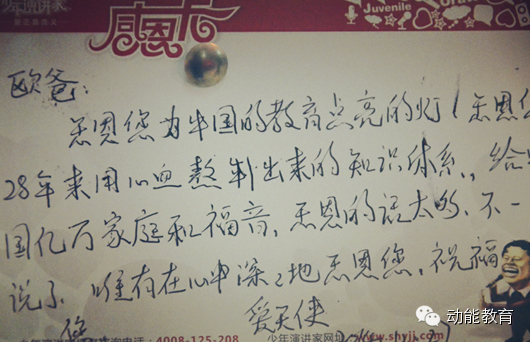 少年演讲家
感恩卡
Juvenile
欧爸:
感恩您为中国的教育点亮的灯!感恩您
28年来用心血熬制出来的知识体系,给中
国亿万家庭和福音,感恩的话太多,不一一
说了,唯有在心中深深地感恩您,祝福
您
爱天使
4008-125-208
少年演讲家网址
www.shyjj.com
动能教育